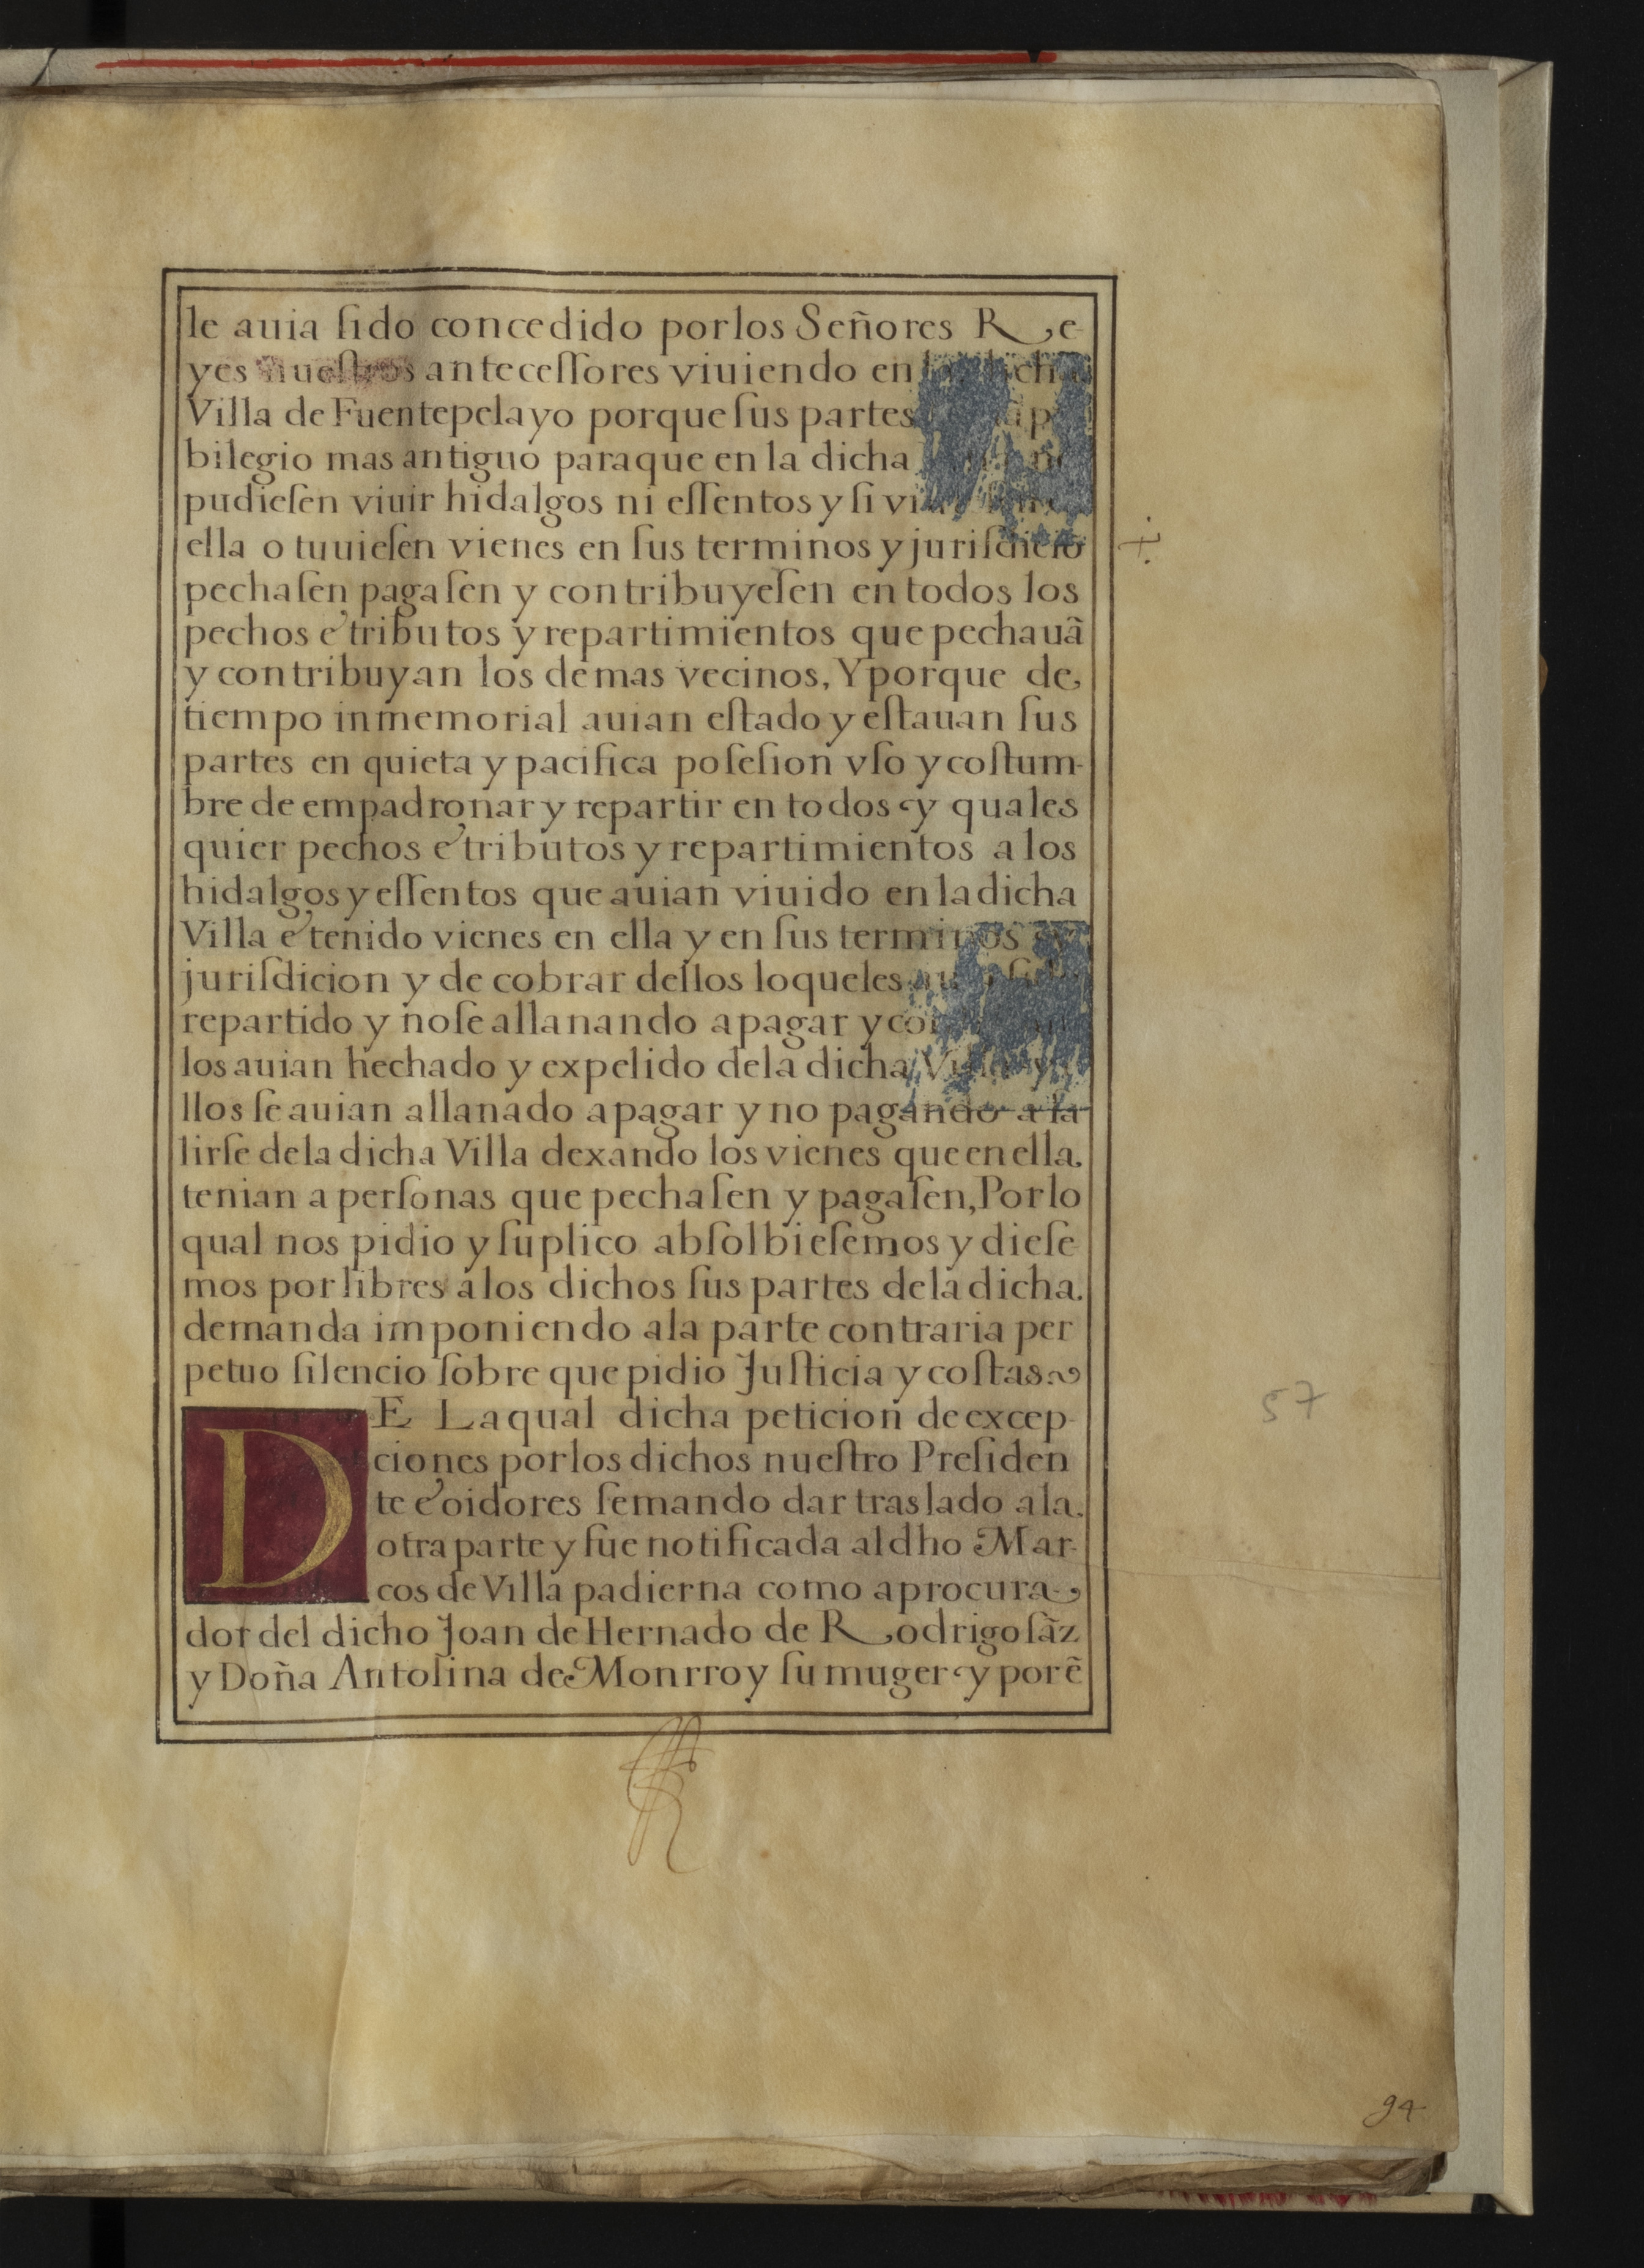 le auia ſido concedido por los Señores Re-
yes nueſtros anteceſſores viuiendo en la dicha
Villa de Fuentepelayo porque ſus partes
bilegio mas antiguo para que en la dicha
pudieſen viuir hidalgos ni eſſentos y ſi
ella o tuuieſen vienes en ſus terminos y juriſdicio
pechaſen pagaſen y contribuyeſen en todos los
pechos e tributos y repartimientos que pechauã
y contribuyan los demas vecinos, Y porque de
tiempo inmemorial auian eſtado y eſtauan ſus
partes en quieta y pacifica poſeſion vſo y coſtum-
bre de empadronar y repartir en todos y quales
quier pechos e tributos y repartimientos a los
hidalgos y eſſentos que auian viuido en la dicha
Villa e tenido vienes en ella y en ſus terminos y
juriſdicion y de cobrar dellos lo que les
repartido y no ſe allanando a pagar y
los auian hechado y expelido de la dicha Villa y
llos ſe auian allanado a pagar y no pagando a ſa
lirſe de la dicha Villa dexando los vienes que en ella.
tenian a perſonas que pechaſen y pagaſen, Por lo
qual nos pidio y ſuplico abſolbieſemos y dieſe
mos por libres a los dichos ſus partes de la dicha.
demanda imponiendo a la parte contraria per
petuo ſilencio ſobre que pidio Juſticia y coſtas
DE La qual dicha peticion de excep-
ciones por los dichos nueſtro Preſiden
te e oidores ſe mando dar traslado a la.
otra parte y fue notificada al dho Mar-
cos de Villa padierna como a procura-
dor del dicho Joan de Hernado de Rodrigo ſãz
y Doña Antoſina de Monrroy ſu muger y por ẽ
57
94